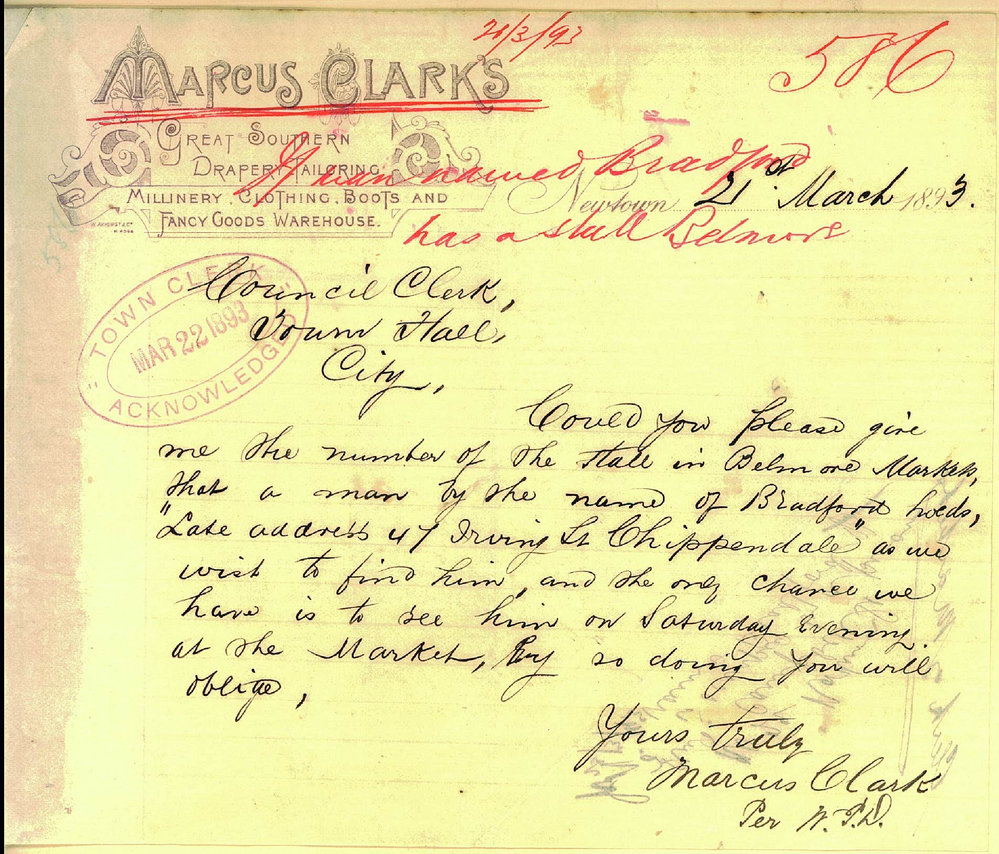 21/3/93
586
MARCUS CLARK'S
GREAT SOUTHERN
DRAPERY, TAILORING,
MILLINERY, CLOTHING, BOOTS AND
FANCY GOODS WAREHOUSE.
If man named Bradford
has a stall Belmore
Newtown 21st March 1893.
TOWN CLERK
MAR 22 1893
ACKNOWLEDGED
Council Clerk,
Town Hall,
City,
Could you please give
me the number of the stall in Belmore Markets,
that a man by the name of Bradford holds,
"Late address 47 Irving St Chippendale" as we
wish to find him, and the only chance we
have is to see him on Saturday Evening
at the Market, By so doing you will
oblige,
Yours truly
Marcus Clark
Per W.P.D.